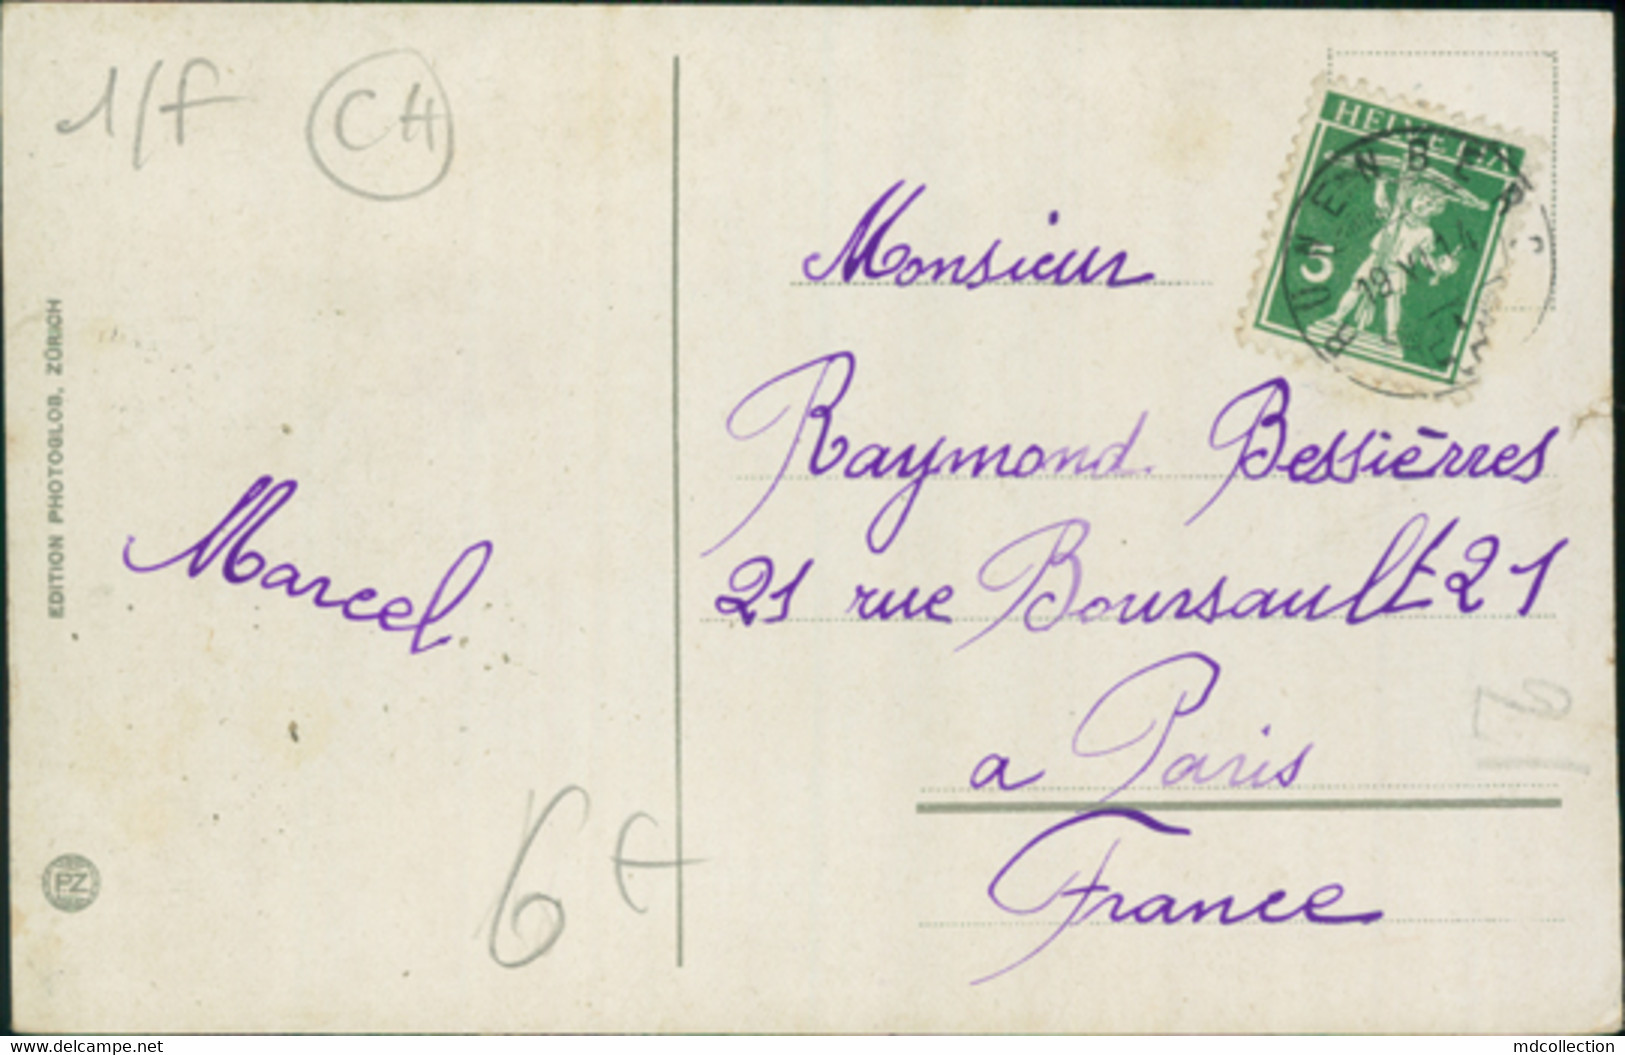 1/f
CH
HELVETIA
5
BUNENBERG
19.VI.14
Monsieur
Raymond Bessières
21 rue Boursault 21
a Paris
France
21
Marcel
6 f
EDITION PHOTOGLOB, ZÜRICH
PZ
www.delcampe.net
mdcollection